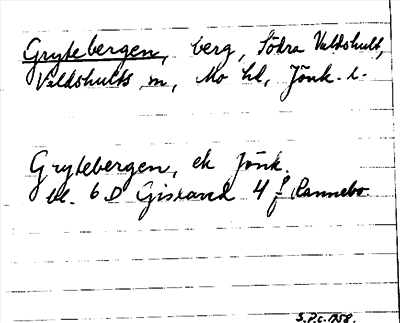 Grytebergen, berg, Södra Valdshult,
Valdshults sn, Mo hd, Jönk. l.
Grytebergen, ek Jönk.
bl. 6D Gislaved 4 f Rannebo.
S.P.C. 1958.